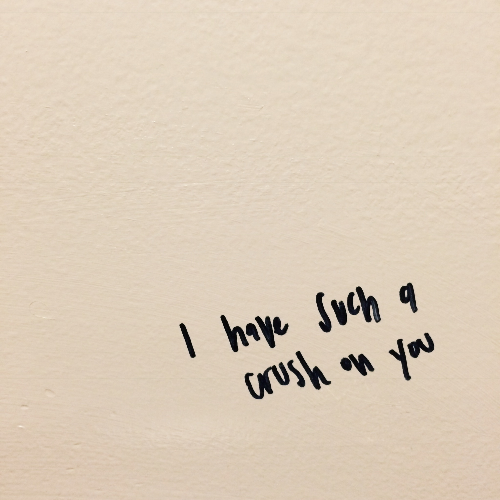 I have such a
crush on you